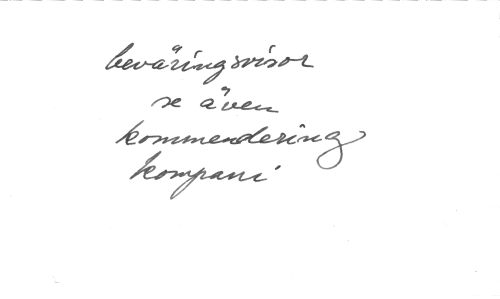 beväringsvisor
se även
kommendering
kompani